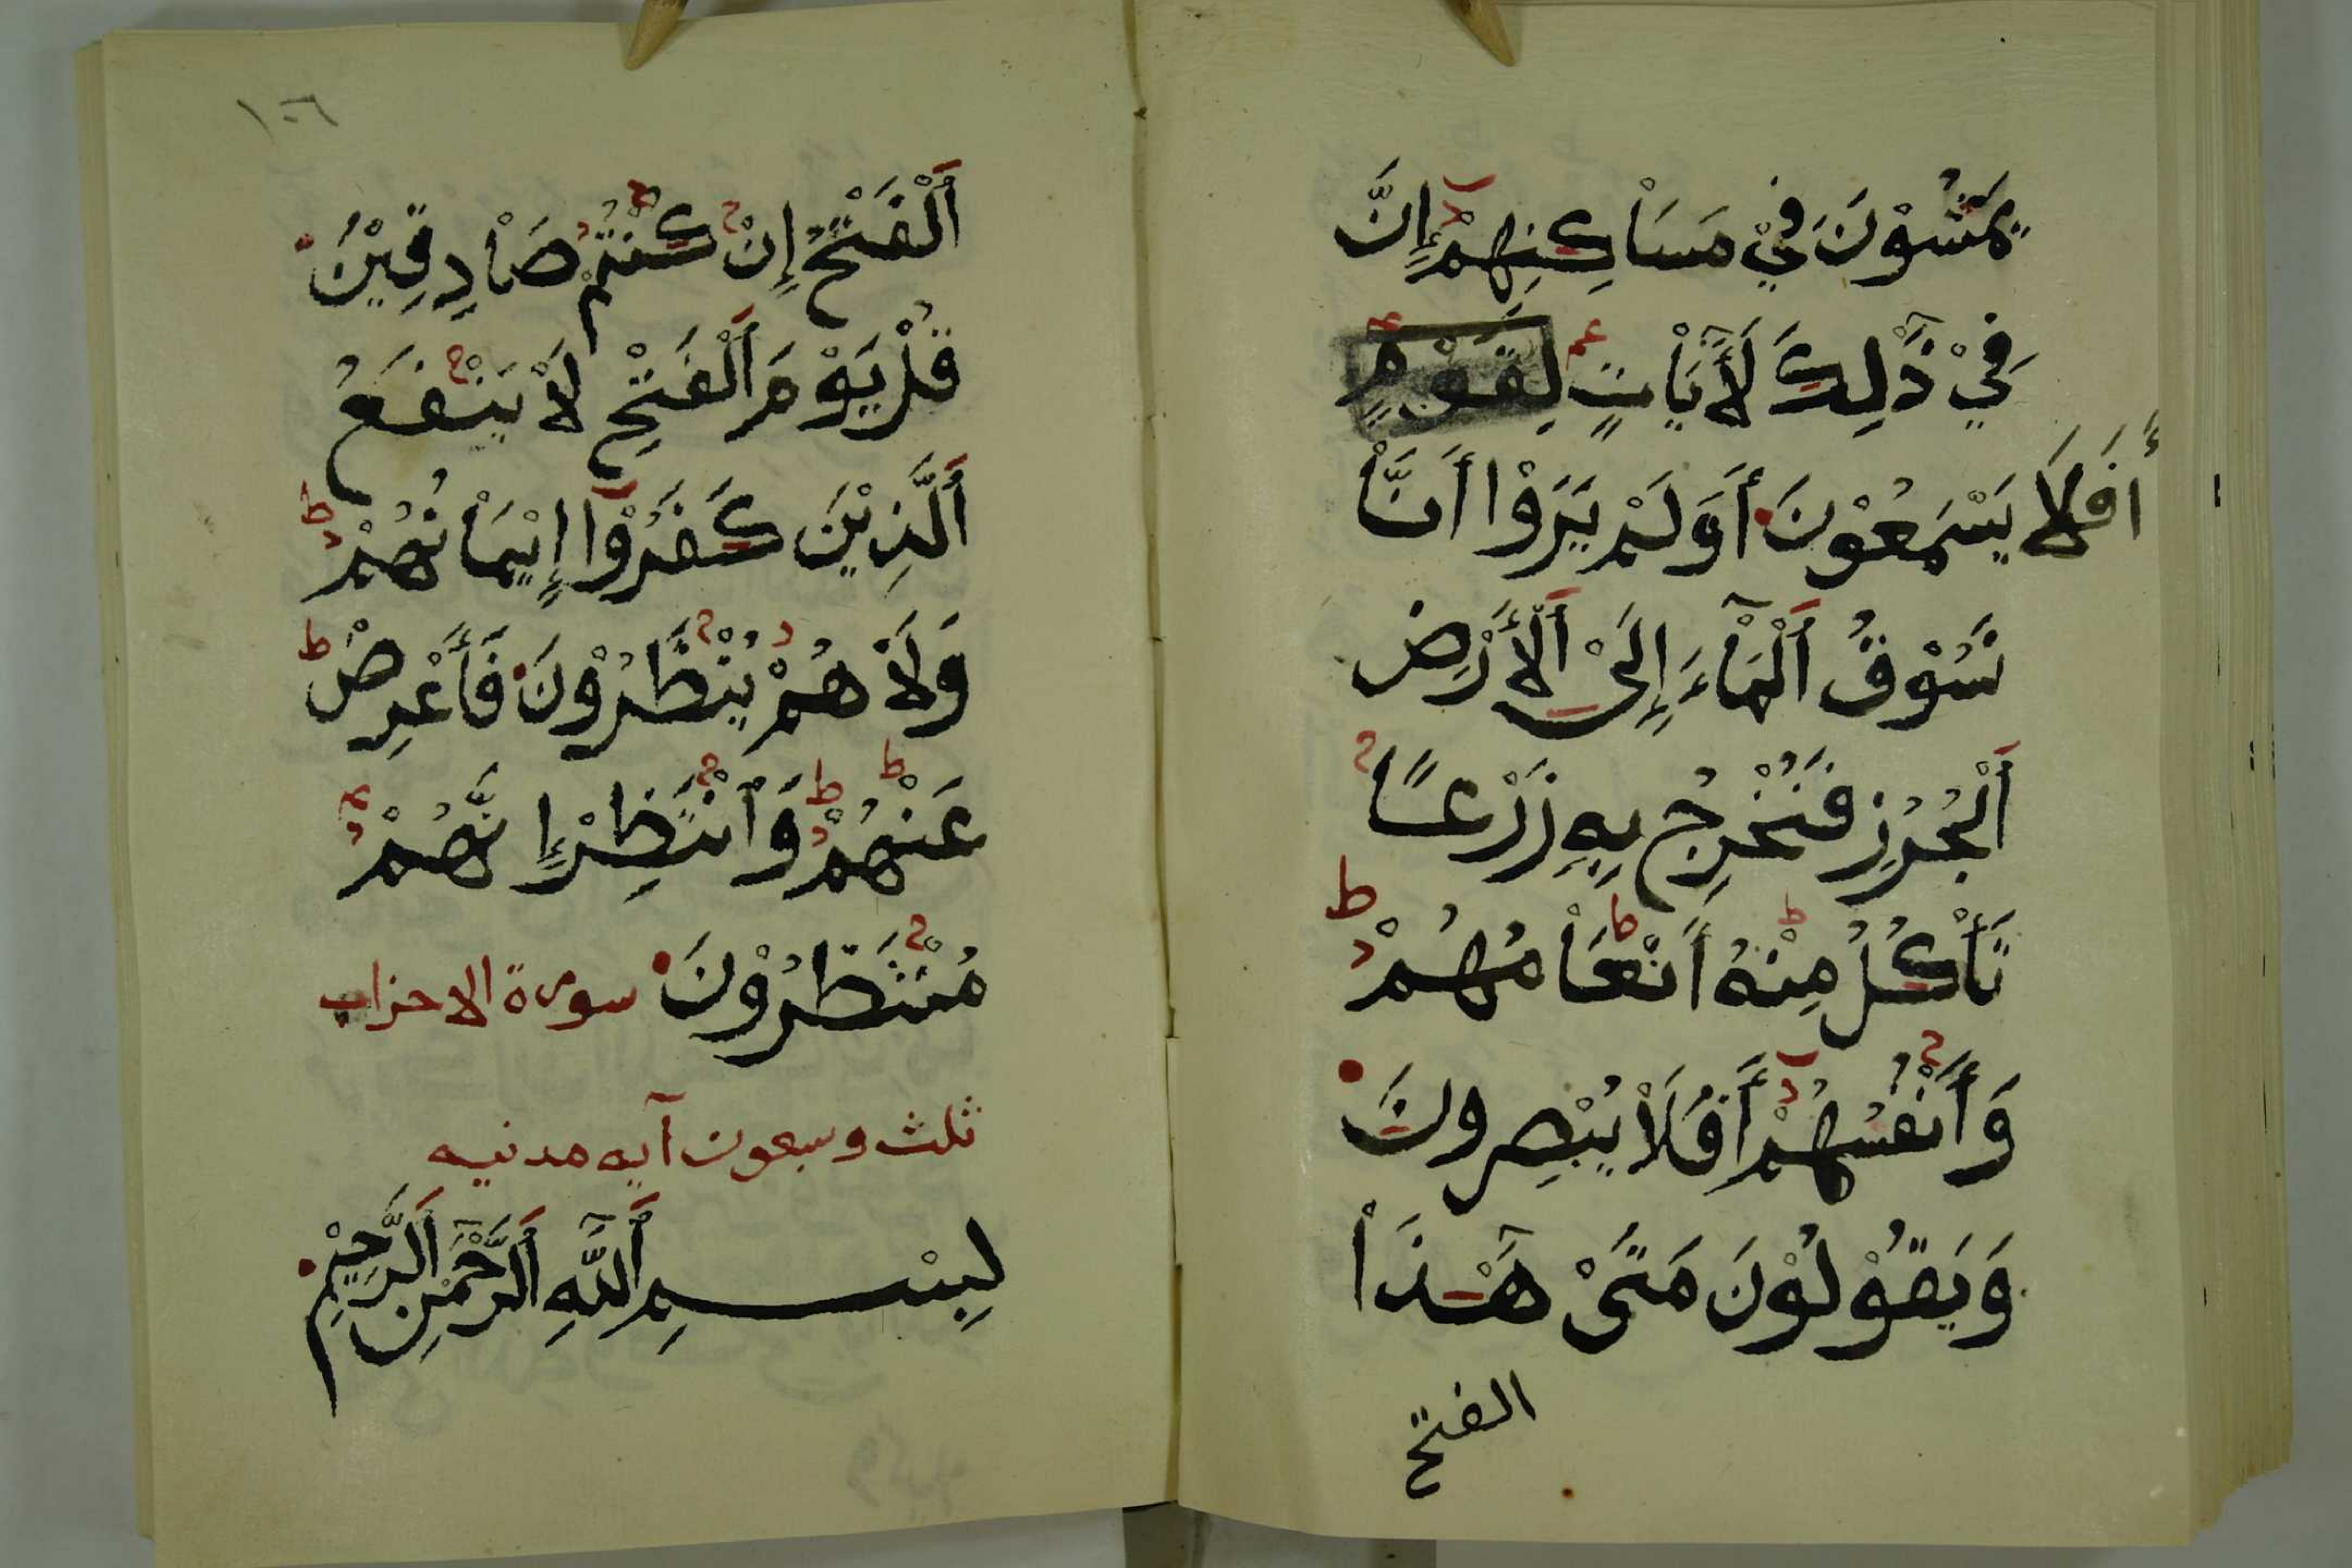 يَمْشُوْنَ فِيْ مَسَاْكِنِهِمْ إِنَّ
فِيْ ذَٰلِكَ لَأَيَاْتٍ لِقَوْمٍ
أَفَلَا يَسْمَعُوْنَ أَوَلَمْ يَرَوْا أَنَّاْ
نَسُوْقُ اَلْمَاْءَ إِلَىْ اَلْأَرْضِ
اَلْجُرُزِ فَنُخْرِجُ بِهِ زَرْعًا
تَأْكُلُ مِنْهُ أَنْعَاْمُهُمْ
وَأَنْفُسُهُمْ أَفَلَاْ يُبْصِرُونَ
وَيَقُوْلُوْنَ مَتَىْ هَٰذَاْ
الفتح
١٠٦
اَلْفَتْحُ إِنْ كُنْتُمْ صَاْدِقِيْنَ
قُلْ يَوْمَ اَلْفَتْحِ لَاْ يَنْفَعُ
اَلَّذِيْنَ كَفَرُوْا إِيْمَاْنُهُمْ
وَلَاْ هُمْ يُنْظَرُوْنَ فَأَعْرِضْ
عَنْهُمْ وَاْنْتَظِرْ إِنَّهُمْ
مُنْتَظِرُوْنَ سورة الاحزاب
ثلث وسبعون آيه مدنيه
بِسْمِ اَللَّهِ اَلرَّحْمَٰنِ اَلرَّحِيْمِ